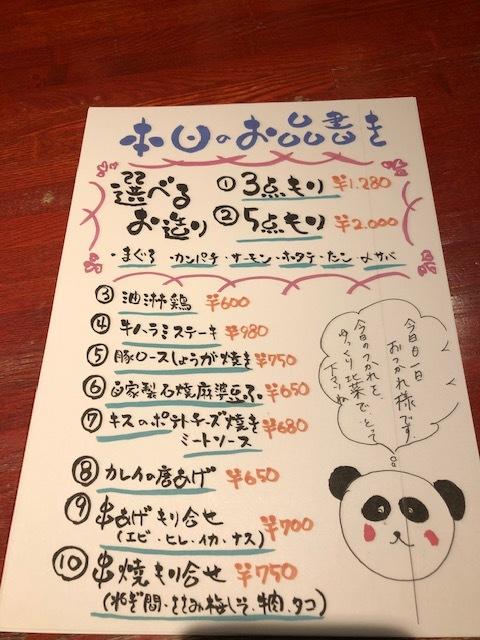 本日のお品書き
選べる
お造り
① 3点もり ¥1.280
② 5点もり ¥2.000
・まぐろ・カンパチ・サーモン・ホタテ・たこ・〆サバ
③ 油淋鶏 ¥600
④ 牛ハラミステーキ ¥980
⑤ 豚ロースしょうが焼き ¥750
⑥ 自家製石焼麻婆豆ふ ¥650
⑦ キスのポテトチーズ焼き ¥680
ミートソース
⑧ カレイの唐あげ ¥650
⑨ 串あげもり合せ ¥700
(エビ・ヒレ・イカ・ナス)
⑩ 串焼もり合せ ¥750
(ねぎ間・ささみ梅しそ・牛肉・タコ)
今日も一日
おつかれ様です。
今日のつかれを、
ゆっくり北葉で、とって
下さいね